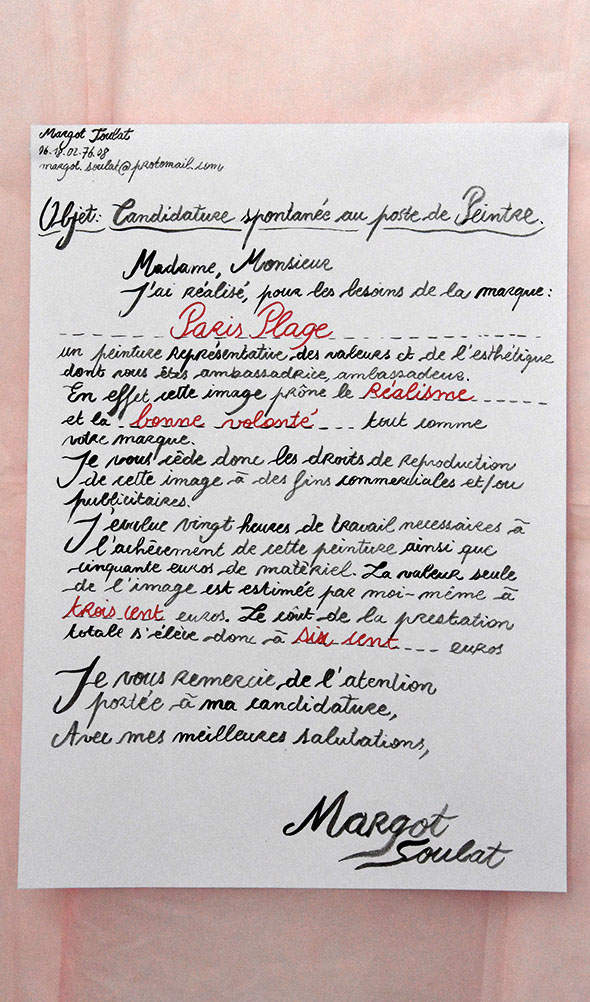 Margot Soulat
06.18.02.76.08
margot.soulat@protomail.com
Objet: Candidature spontanée au poste de Peintre.
Madame, Monsieur
J'ai réalisé, pour les besoins de la marque:
Paris Plage
un peinture représentative des valeurs et de l'esthétique
dont vous êtes ambassadrice, ambassadeur.
En effet cette image prône le Réalisme
et la bonne volonté tout comme
votre marque.
Je vous cède donc les droits de reproduction
de cette image à des fins commerciales et/ou
publicitaires.
J'évalue vingt heures de travail necessaires à
l'achèvement de cette peinture ainsi que
cinquante euros de matériel. La valeur seule
de l'image est estimée par moi-même à
trois cent euros. Le coût de la prestation
totale s'élève donc à six cent euros
Je vous remercie de l'atention
portée à ma candidature,
Avec mes meilleures salutations,
Margot
Soulat